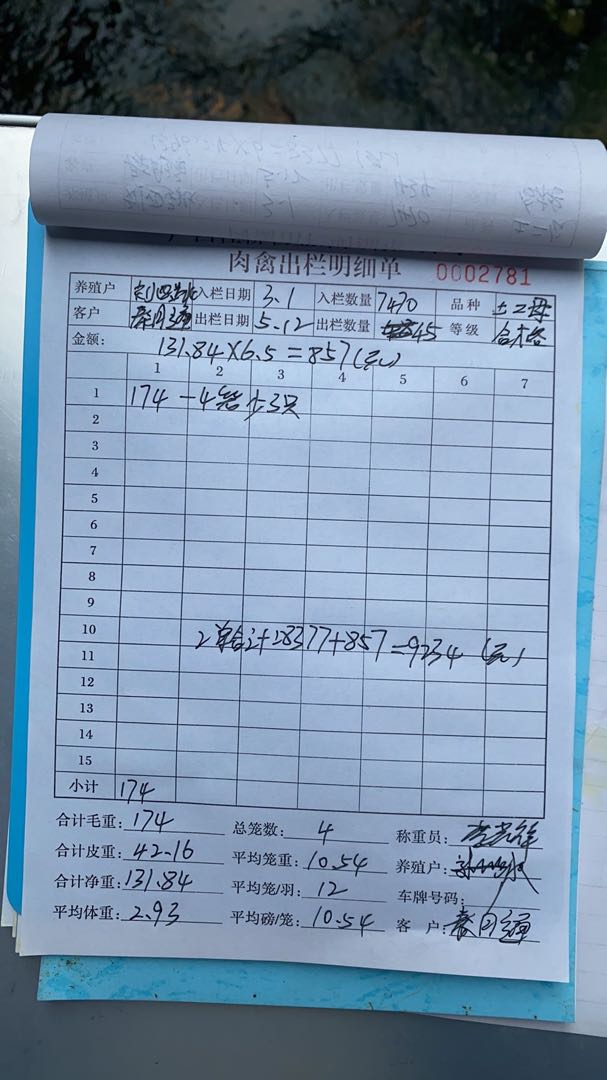 肉禽出栏明细单 0002781
养殖户 入栏日期 3.1 入栏数量 7470 品种 土2母
客户 出栏日期 5.12 出栏数量 45 等级 合格
金额: 131.84×6.5=857(元)
1 2 3 4 5 6 7
1 174 -4笼少3只
2
3
4
5
6
7
8
9
10
2单合计+28377+857=9234(元)
11
12
13
14
15
小计 174
合计毛重: 174 总笼数: 4 称重员:
合计皮重: 42.16 平均笼重: 10.54 养殖户:
合计净重: 131.84 平均笼/羽: 12 车牌号码:
平均体重: 2.93 平均磅/笼: 10.54 客 户: